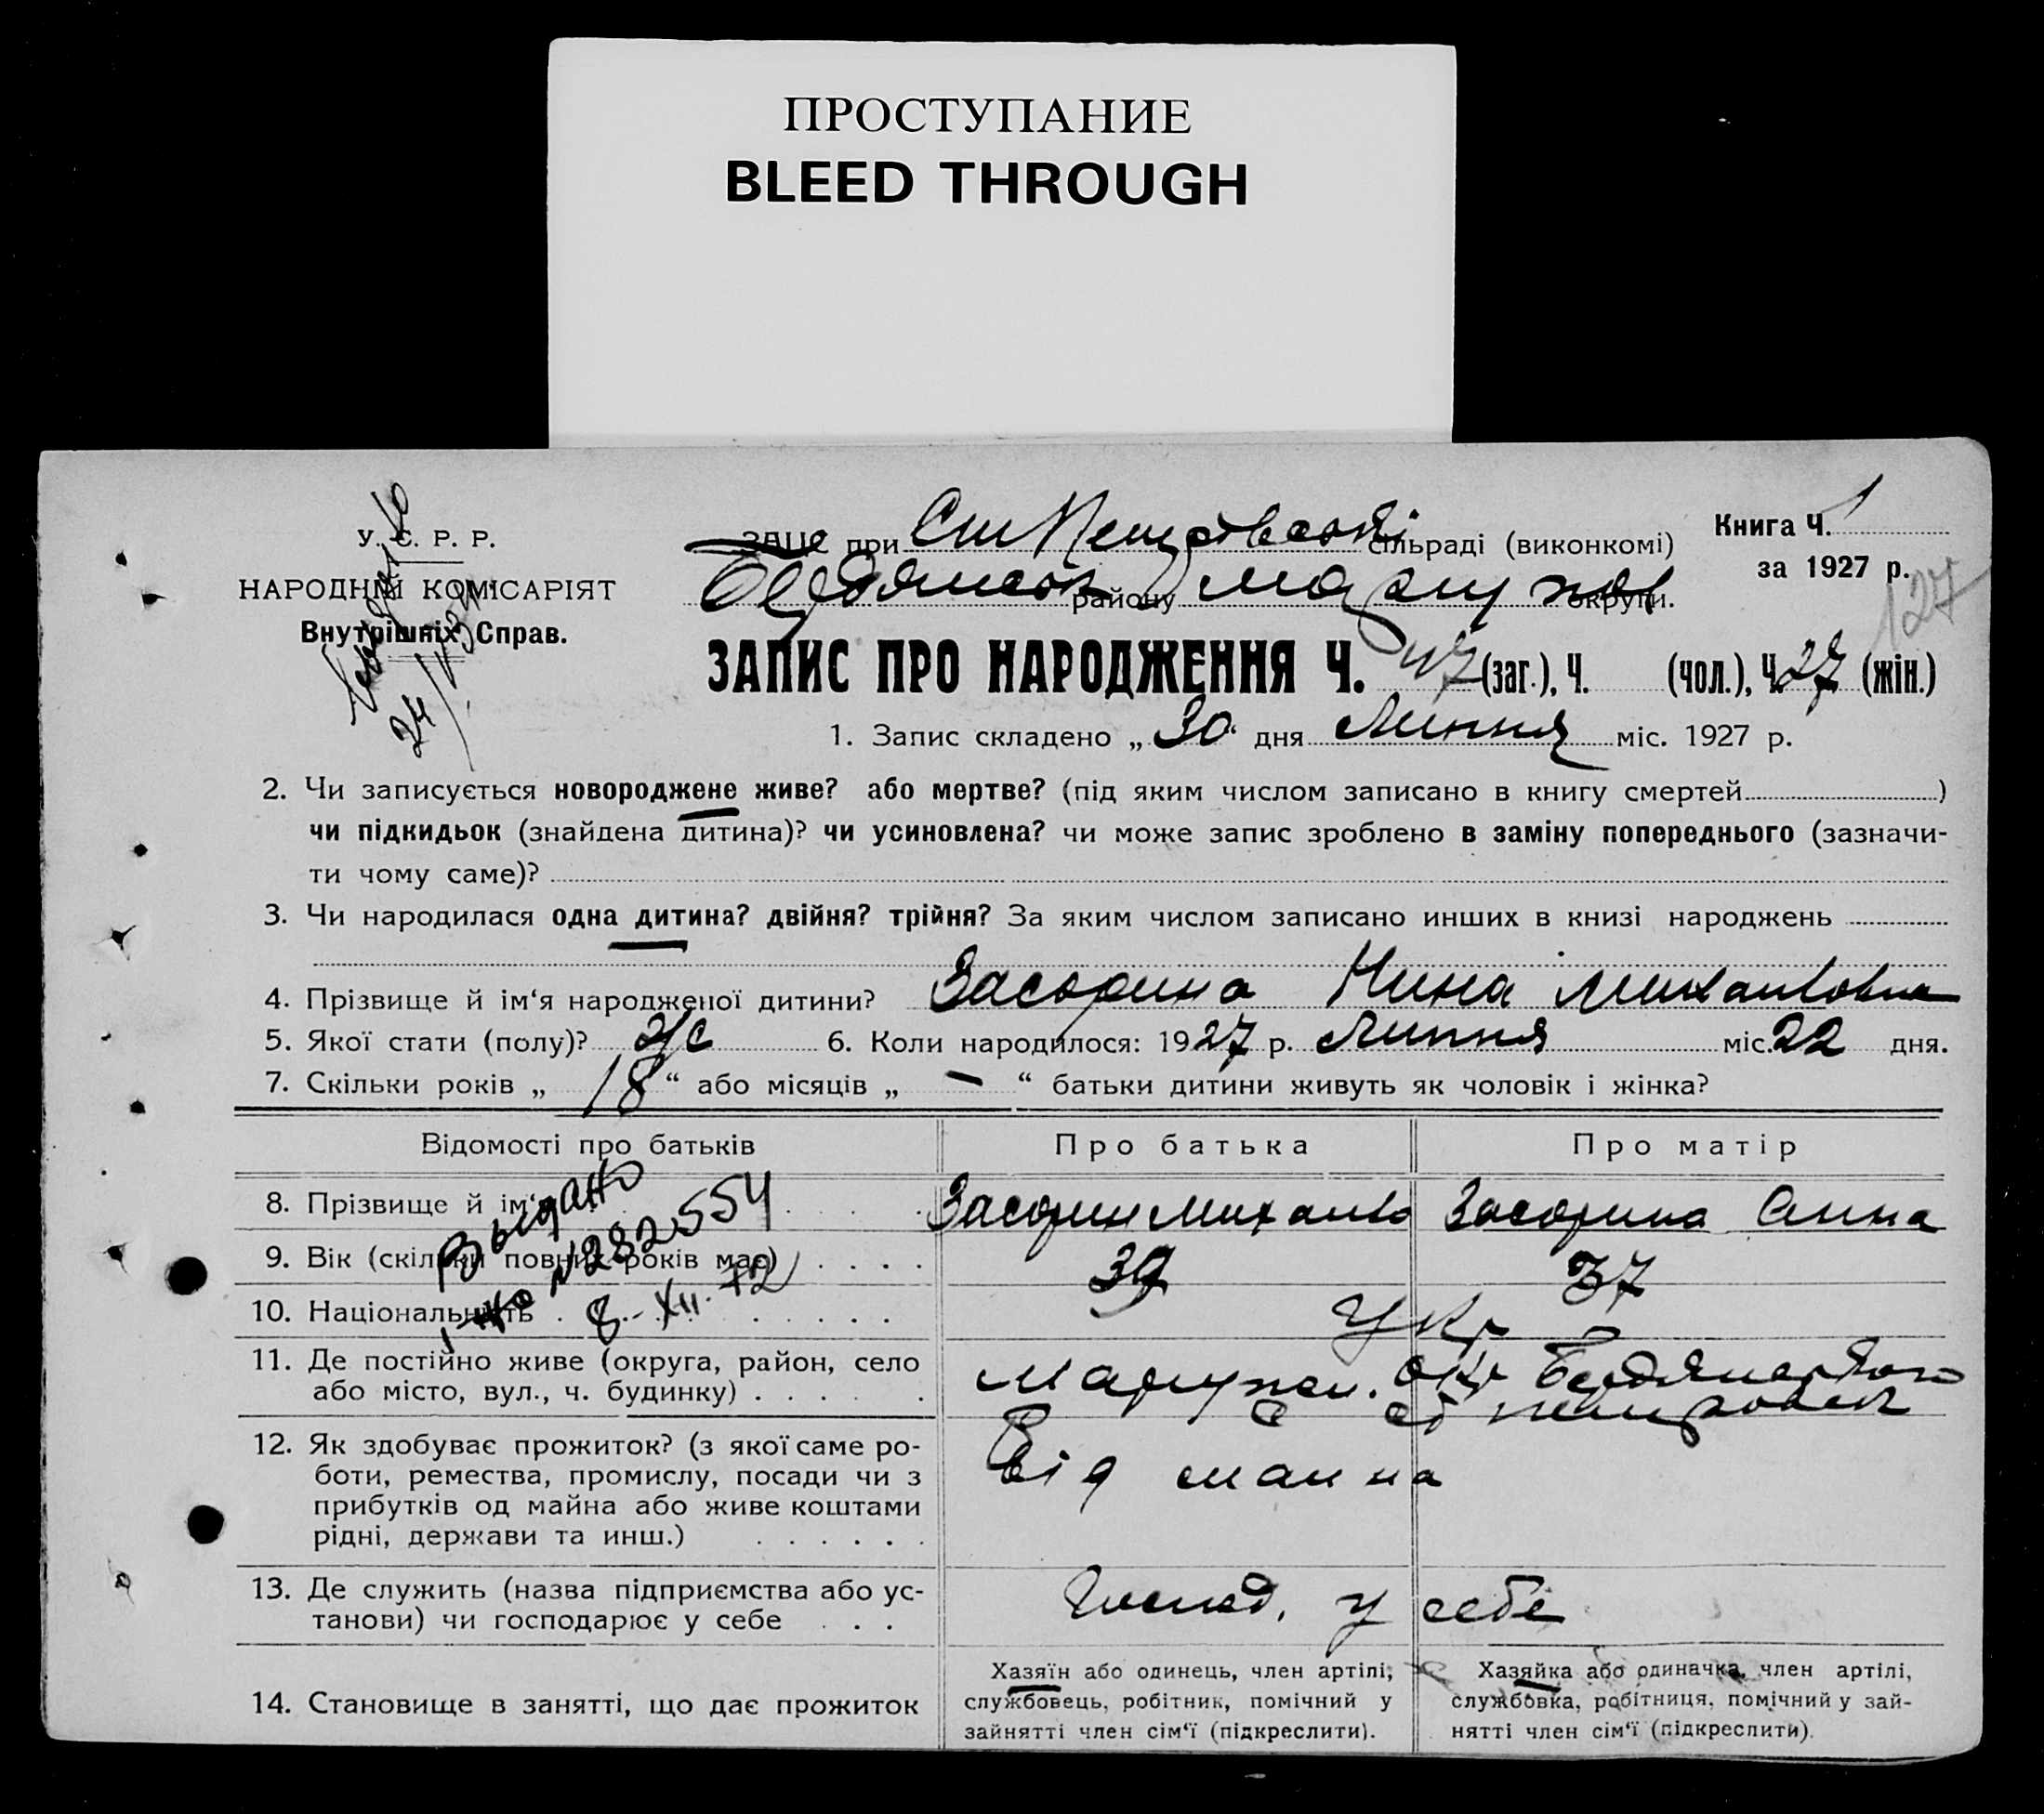 ПРОСТУПАНИЕ
BLEED THROUGH
У. С. Р. Р.
НАРОДНІЙ КОМІСАРІЯТ
Внутрішніх Справ.
ЗАЦС при сільраді (виконкомі)
району округи.
Книга Ч. 1
за 1927 р.
127
ЗАПИС ПРО НАРОДЖЕННЯ Ч. 47 (заг.), Ч. (чол.), Ч. 27 (жін.)
1. Запис складено „30“ дня Липня міс. 1927 р.
2. Чи записується новороджене живе? або мертве? (під яким числом записано в книгу смертей )
чи підкидьок (знайдена дитина)? чи усиновлена? чи може запис зроблено в заміну попереднього (зазначи-
ти чому саме)?
3. Чи народилася одна дитина? двійня? трійня? За яким числом записано инших в книзі народжень
4. Прізвище й ім‘я народженої дитини? Засорина Нина Михайловна
5. Якої стати (полу)? ж 6. Коли народилося: 1927 р. Липня міс. 22 дня.
7. Скільки років „18“ або місяців „ — “ батьки дитини живуть як чоловік і жінка?
Відомості про батьків Про батька Про матір
8. Прізвище й ім‘я Засорин Михайло Засорина Анна
9. Вік (скільки повних років має) 39 37
10. Національність Укр
Выдано
№282554
8-XII-72
11. Де постійно живе (округа, район, село
або місто, вул., ч. будинку)
12. Як здобуває прожиток? (з якої саме ро-
боти, ремества, промислу, посади чи з
прибутків од майна або живе коштами
рідні, держави та инш.)
Від майна
13. Де служить (назва підприємства або ус-
танови) чи господарює у себе
Господ. у себе
14. Становище в занятті, що дає прожиток
Хазяїн або одинець, член артілі,
службовець, робітник, помічний у
зайнятті член сім‘ї (підкреслити).
Хазяйка або одиначка, член артілі,
службовка, робітниця, помічний у зай-
нятті член сім‘ї (підкреслити).